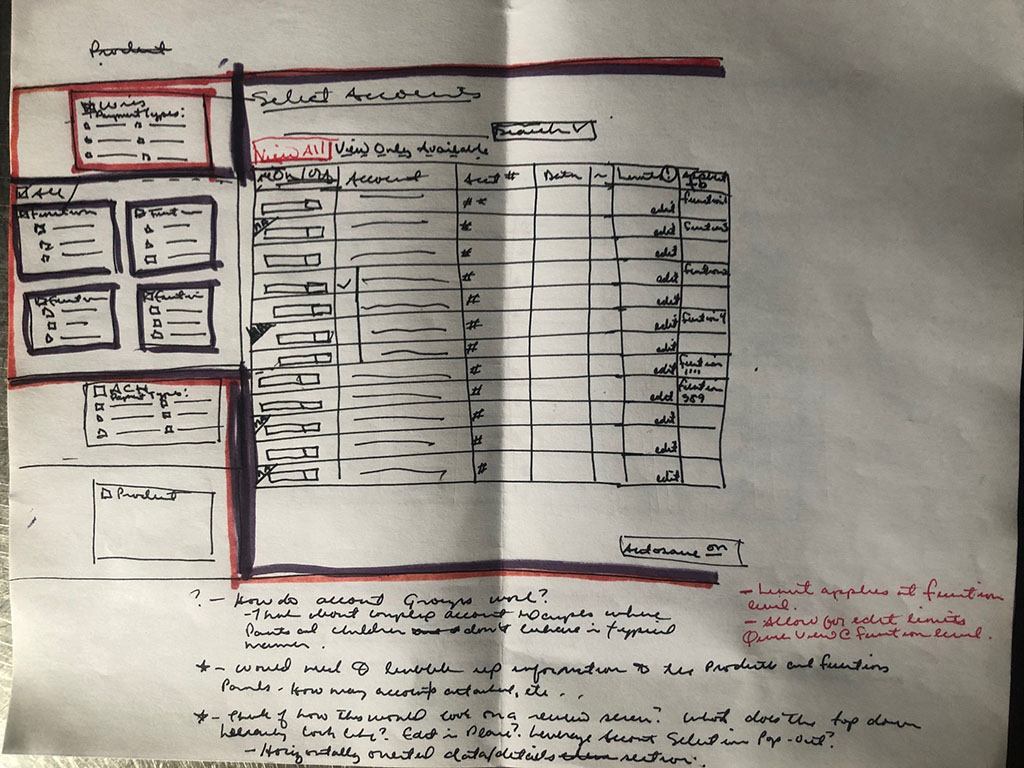 Product
Select Accounts
Wires
Payment Types:
Search
View All View Only Available
Account Acct # Limit
All
Function
Function
Function
Function
# #
#
#
#
#
#
#
#
#
#
#
#
edit
edit
edit
edit
edit
edit
edit
edit
edit
edit
edit
edit
Function
Function
Function
Function 4
Function
Function
389
ACH
Payment Types:
Product
Autosave on
? - How do account Groups work?
- Think about complex account where
Parents and children don't behave in typical
manner.
* - Would need to bubble up information to the Products and Functions
Panels - How many accounts attached, etc...
* - Think of how this would look on a review screen? What does the top down
hierarchy look like? Edit in Place? Leverage Account Selection Pop-Out?
- Horizontally oriented data/details section.
- Limit applies at function
level.
- Allow for edit limits
Quick View @ function level.